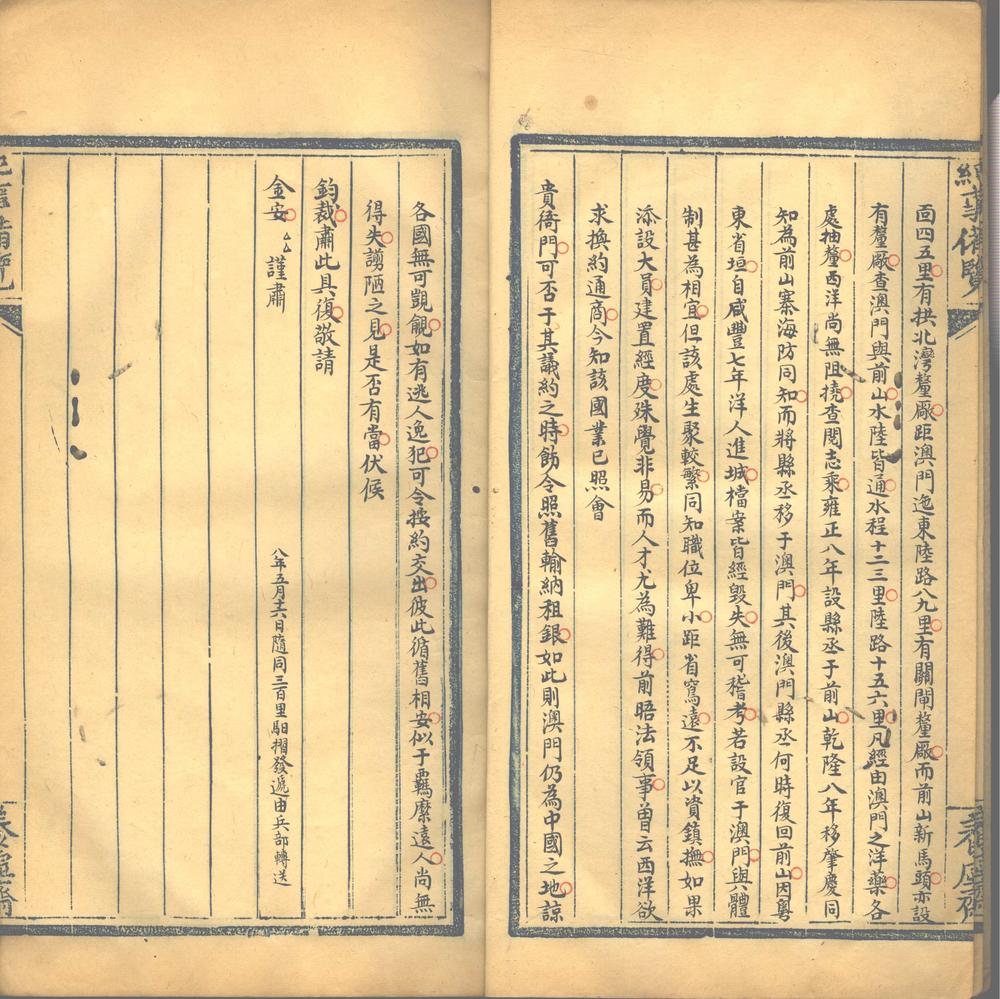 面四五里有拱北灣釐厰距澳門迤東陸路八九里有關閘釐厰而前山新馬頭亦設
有釐厰查澳門與前山水陸皆通水程十二三里陸路十五六里凡經由澳門之洋藥各
處抽釐西洋尚無阻撓查閱志乘雍正八年設縣丞于前山乾隆八年移肇慶同
知為前山寨海防同知而將縣丞移于澳門其後澳門縣丞何時復回前山因粵
東省垣自咸豐七年洋人進城檔案皆經毀失無可稽考若設官于澳門與體
制甚為相宜但該處生聚較繁同知職位卑小距省窵遠不足以資鎮撫如果
添設大員建置經度殊覺非易而人才尤為難得前晤法領事曾云西洋欲
求換約通商今知該國業已照會
貴衙門可否于其議約之時飭令照舊輸納租銀如此則澳門仍為中國之地諒
各國無可覬覦如有逃人逸犯可令按約交出彼此循舊相安似于羈縻遠人尚無
得失謭陋之見是否有當伏候
鈞裁肅此具復敬請
金安 謹肅
八年五月十六日隨同三百里馹摺發遞由兵部轉送